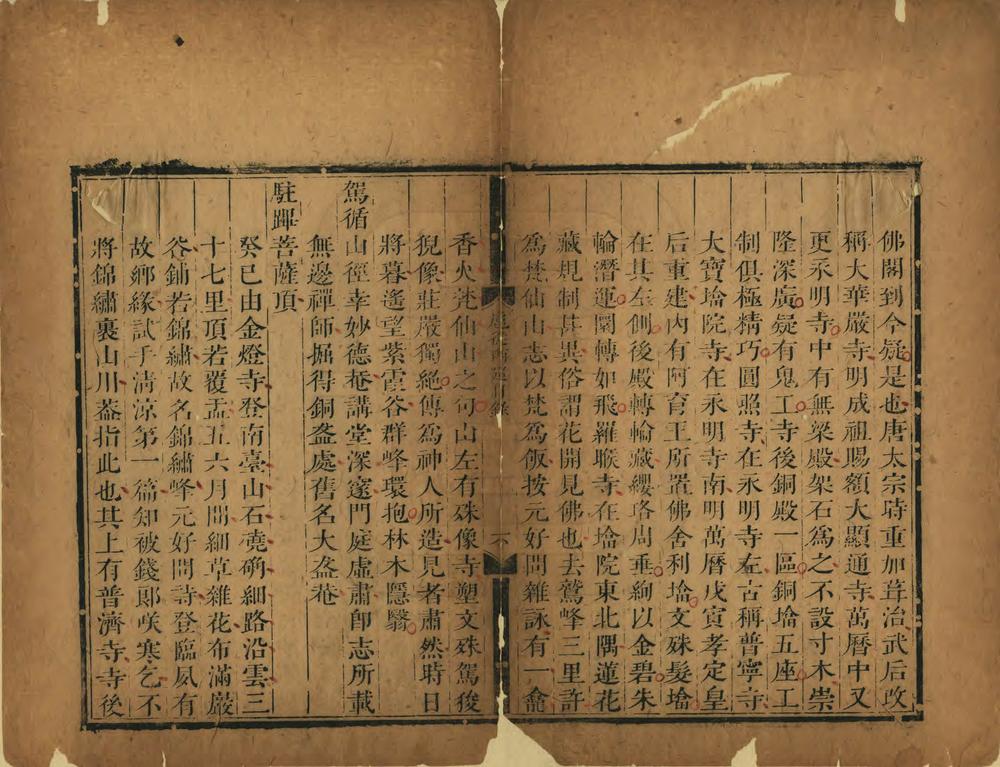 佛閣到今疑是也唐太宗時重加葺治武后改
稱大華嚴寺明成祖賜額大顯通寺萬曆中又
更永明寺中有無梁殿架石為之不設寸木崇
隆深廣疑有鬼工寺後銅殿一區銅塔五座工
制俱極精巧圓照寺在永明寺左古稱普寧寺
大寶塔院寺在永明寺南明萬曆戊寅孝定皇
后重建內有阿育王所置佛舍利塔文殊髮塔
在其左側後殿轉輪藏纓珞周垂絢以金碧朱
輪潛運圜轉如飛羅睺寺在塔院東北隅蓮花
藏規制甚異俗謂花開見佛也去鷲峰三里許
為梵仙山志以梵為飯按元好問雜詠有一龕
扈從西巡日錄
下
香火梵仙山之句山左有殊像寺塑文殊駕狻
猊像莊嚴獨絕傳為神人所造見者肅然時日
將暮遙望紫霞谷群峰環抱林木隱翳
駕循山徑幸妙德菴講堂深邃門庭虛肅即志所載
無邊禪師掘得銅盋處舊名大盋菴
駐蹕菩薩頂
癸巳由金燈寺登南臺山石磽确細路沿雲三
十七里頂若覆盂五六月間細草雜花布滿巖
谷鋪若錦繡故名錦繡峰元好問詩登臨夙有
故鄉緣試手清涼第一篇知被錢郎咲寒乞不
將錦繡裹山川葢指此也其上有普濟寺寺後